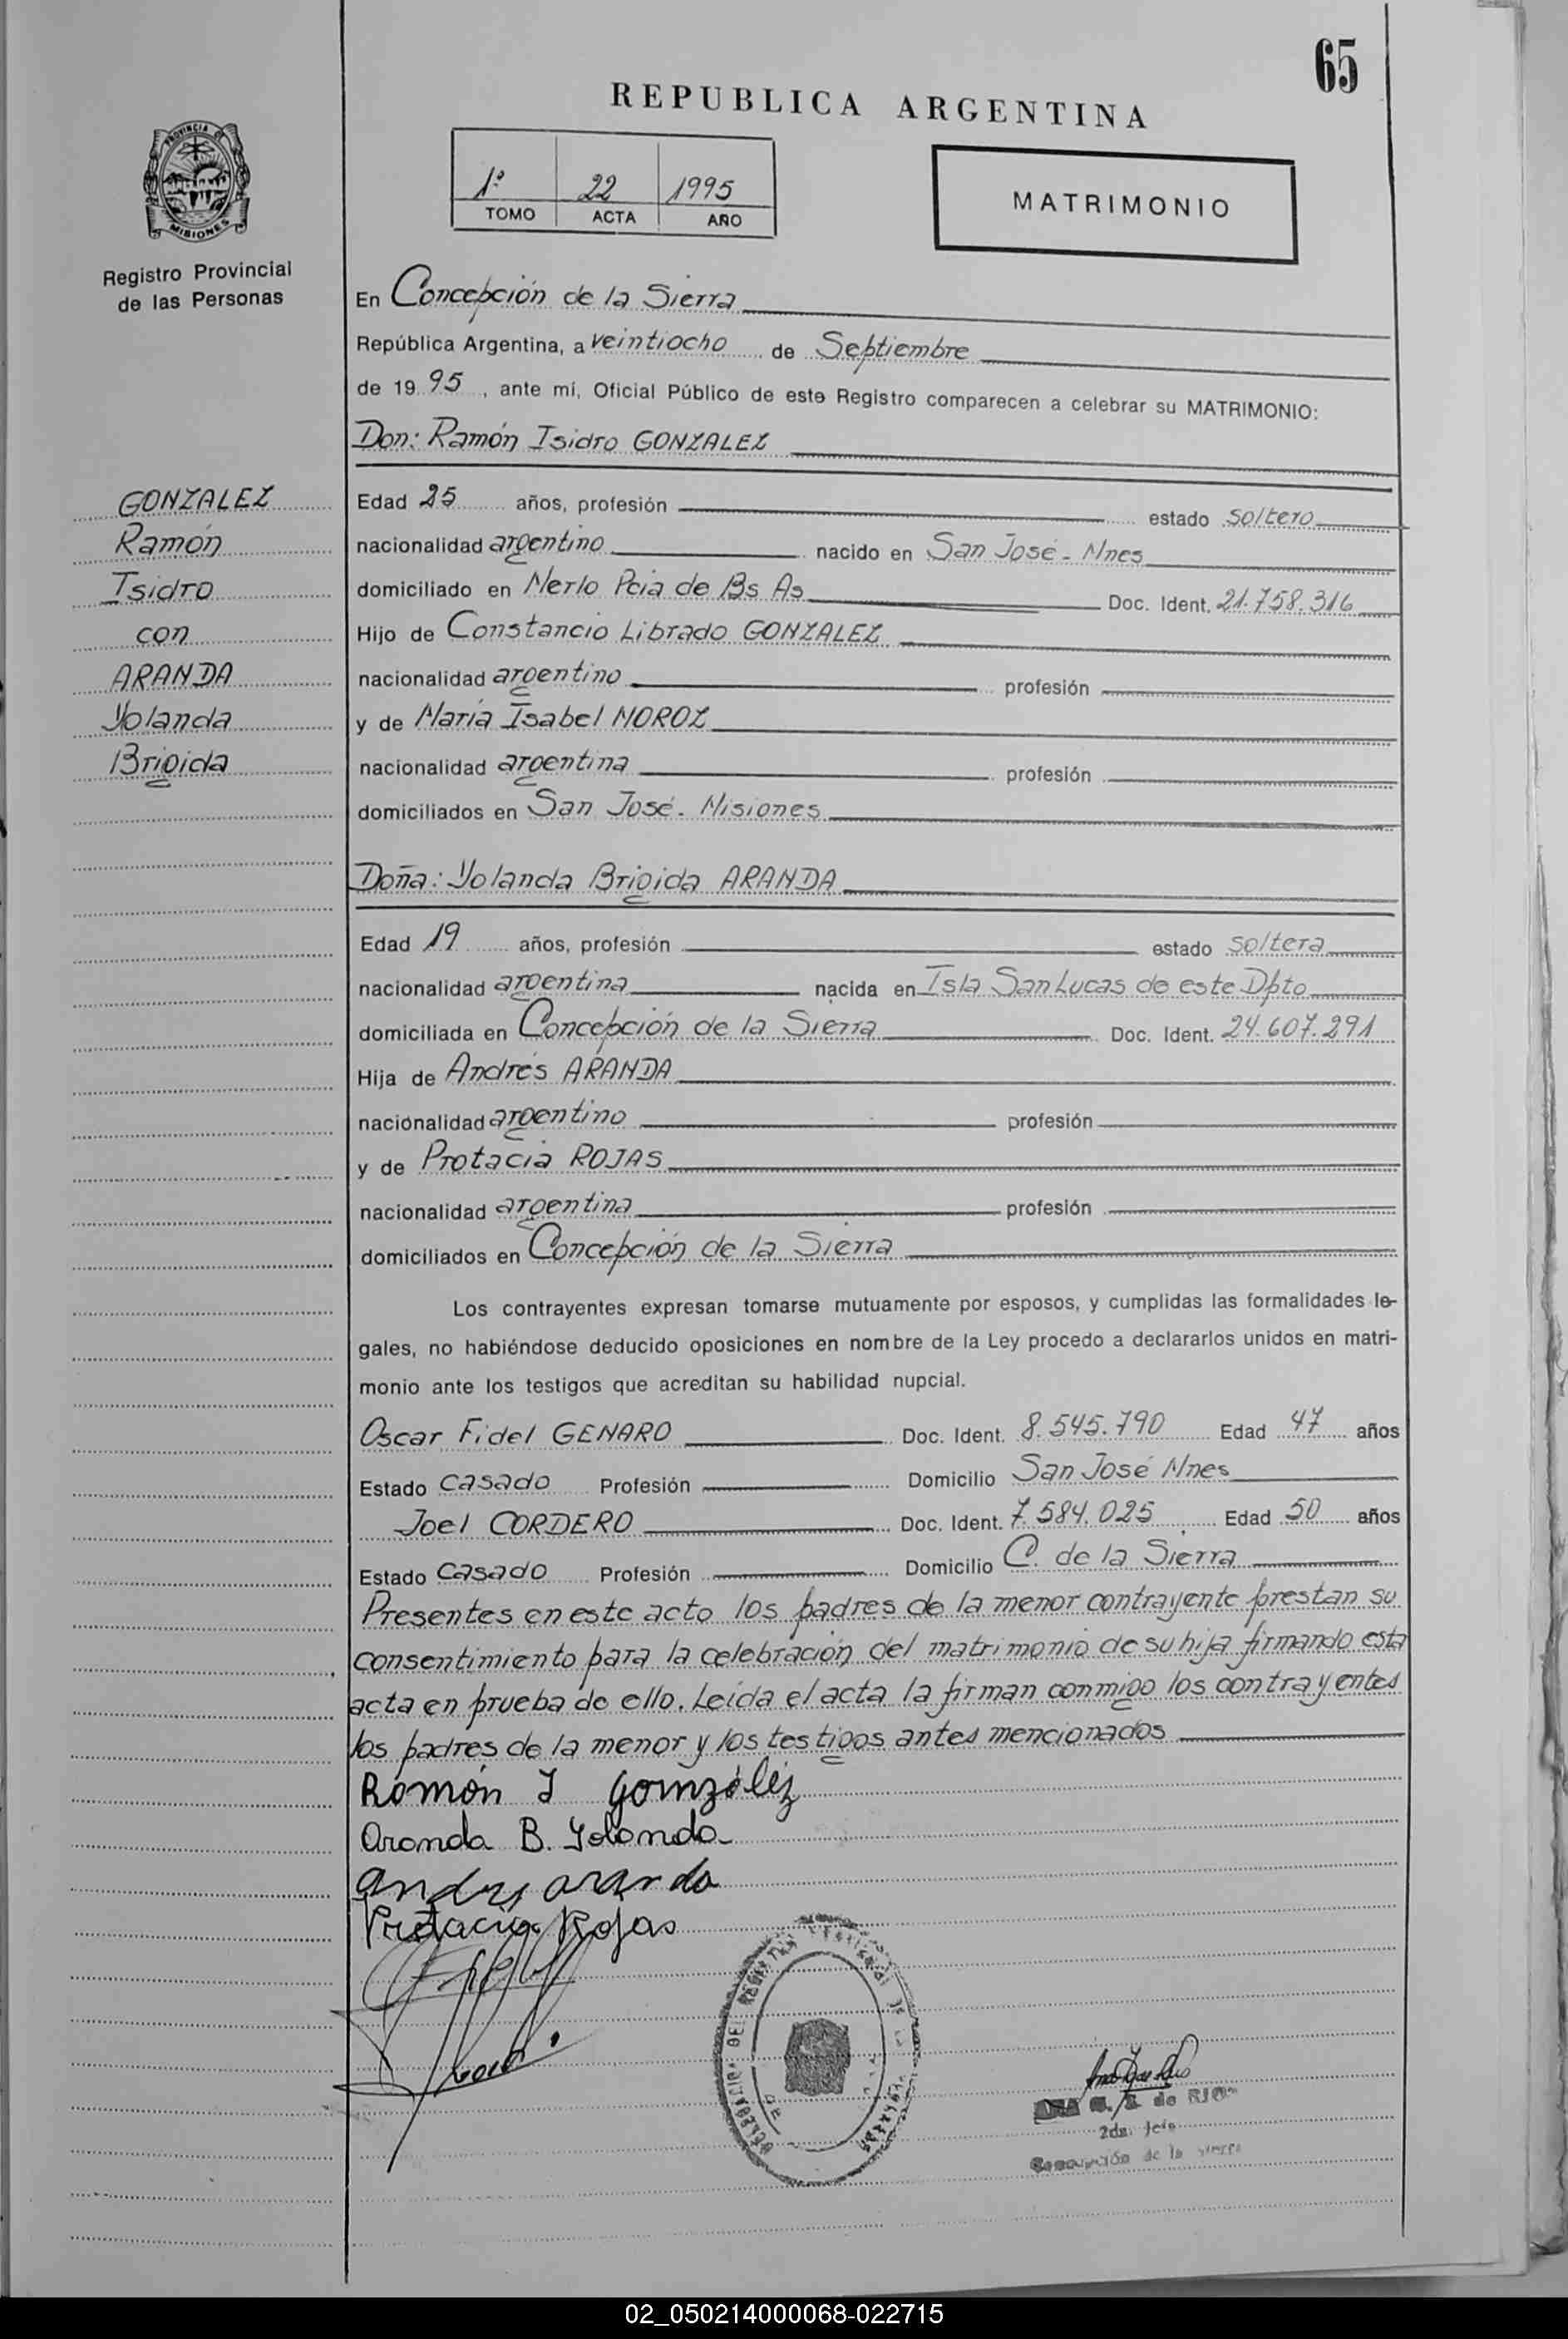 65
REPUBLICA ARGENTINA
1º 22 1995
TOMO ACTA AÑO
MATRIMONIO
PROVINCIA DE
MISIONES
Registro Provincial
de las Personas
En Concepción de la Sierra
República Argentina, a veintiocho de Septiembre
de 19 95, ante mí, Oficial Público de este Registro comparecen a celebrar su MATRIMONIO:
Don: Ramón Isidro GONZALEZ
GONZALEZ
Ramón
Isidro
con
ARANDA
Yolanda
Brigida
Edad 25 años, profesión estado soltero
nacionalidad argentino nacido en San José - Mnes
domiciliado en Merlo Pcia de Bs As Doc. Ident. 21.758.316
Hijo de Constancio Librado GONZALEZ
nacionalidad argentino profesión
y de María Isabel MOROZ
nacionalidad argentina profesión
domiciliados en San José - Misiones
Doña: Yolanda Brigida ARANDA
Edad 19 años, profesión estado soltera
nacionalidad argentina nacida en Isla San Lucas de este Dpto
domiciliada en Concepción de la Sierra Doc. Ident. 24.607.291
Hija de Andrés ARANDA
nacionalidad argentino profesión
y de Protacia ROJAS
nacionalidad argentina profesión
domiciliados en Concepción de la Sierra
Los contrayentes expresan tomarse mutuamente por esposos, y cumplidas las formalidades le-
gales, no habiéndose deducido oposiciones en nombre de la Ley procedo a declararlos unidos en matri-
monio ante los testigos que acreditan su habilidad nupcial.
Oscar Fidel GENARO Doc. Ident. 8.545.790 Edad 47 años
Estado casado Profesión Domicilio San José Mnes
Joel CORDERO Doc. Ident. 7.584.025 Edad 50 años
Estado casado Profesión Domicilio C. de la Sierra
Presentes en este acto los padres de la menor contrayente prestan su
consentimiento para la celebración del matrimonio de su hija firmando esta
acta en prueba de ello. Leída el acta la firman conmigo los contrayentes
los padres de la menor y los testigos antes mencionados
Ramón I González
Aranda B. Yolanda
Andres Aranda
Protacia Rojas
DELEGACION DEL REGISTRO
de RIO
2da. Jefe
Concepción de la Sierra
02_050214000068-022715